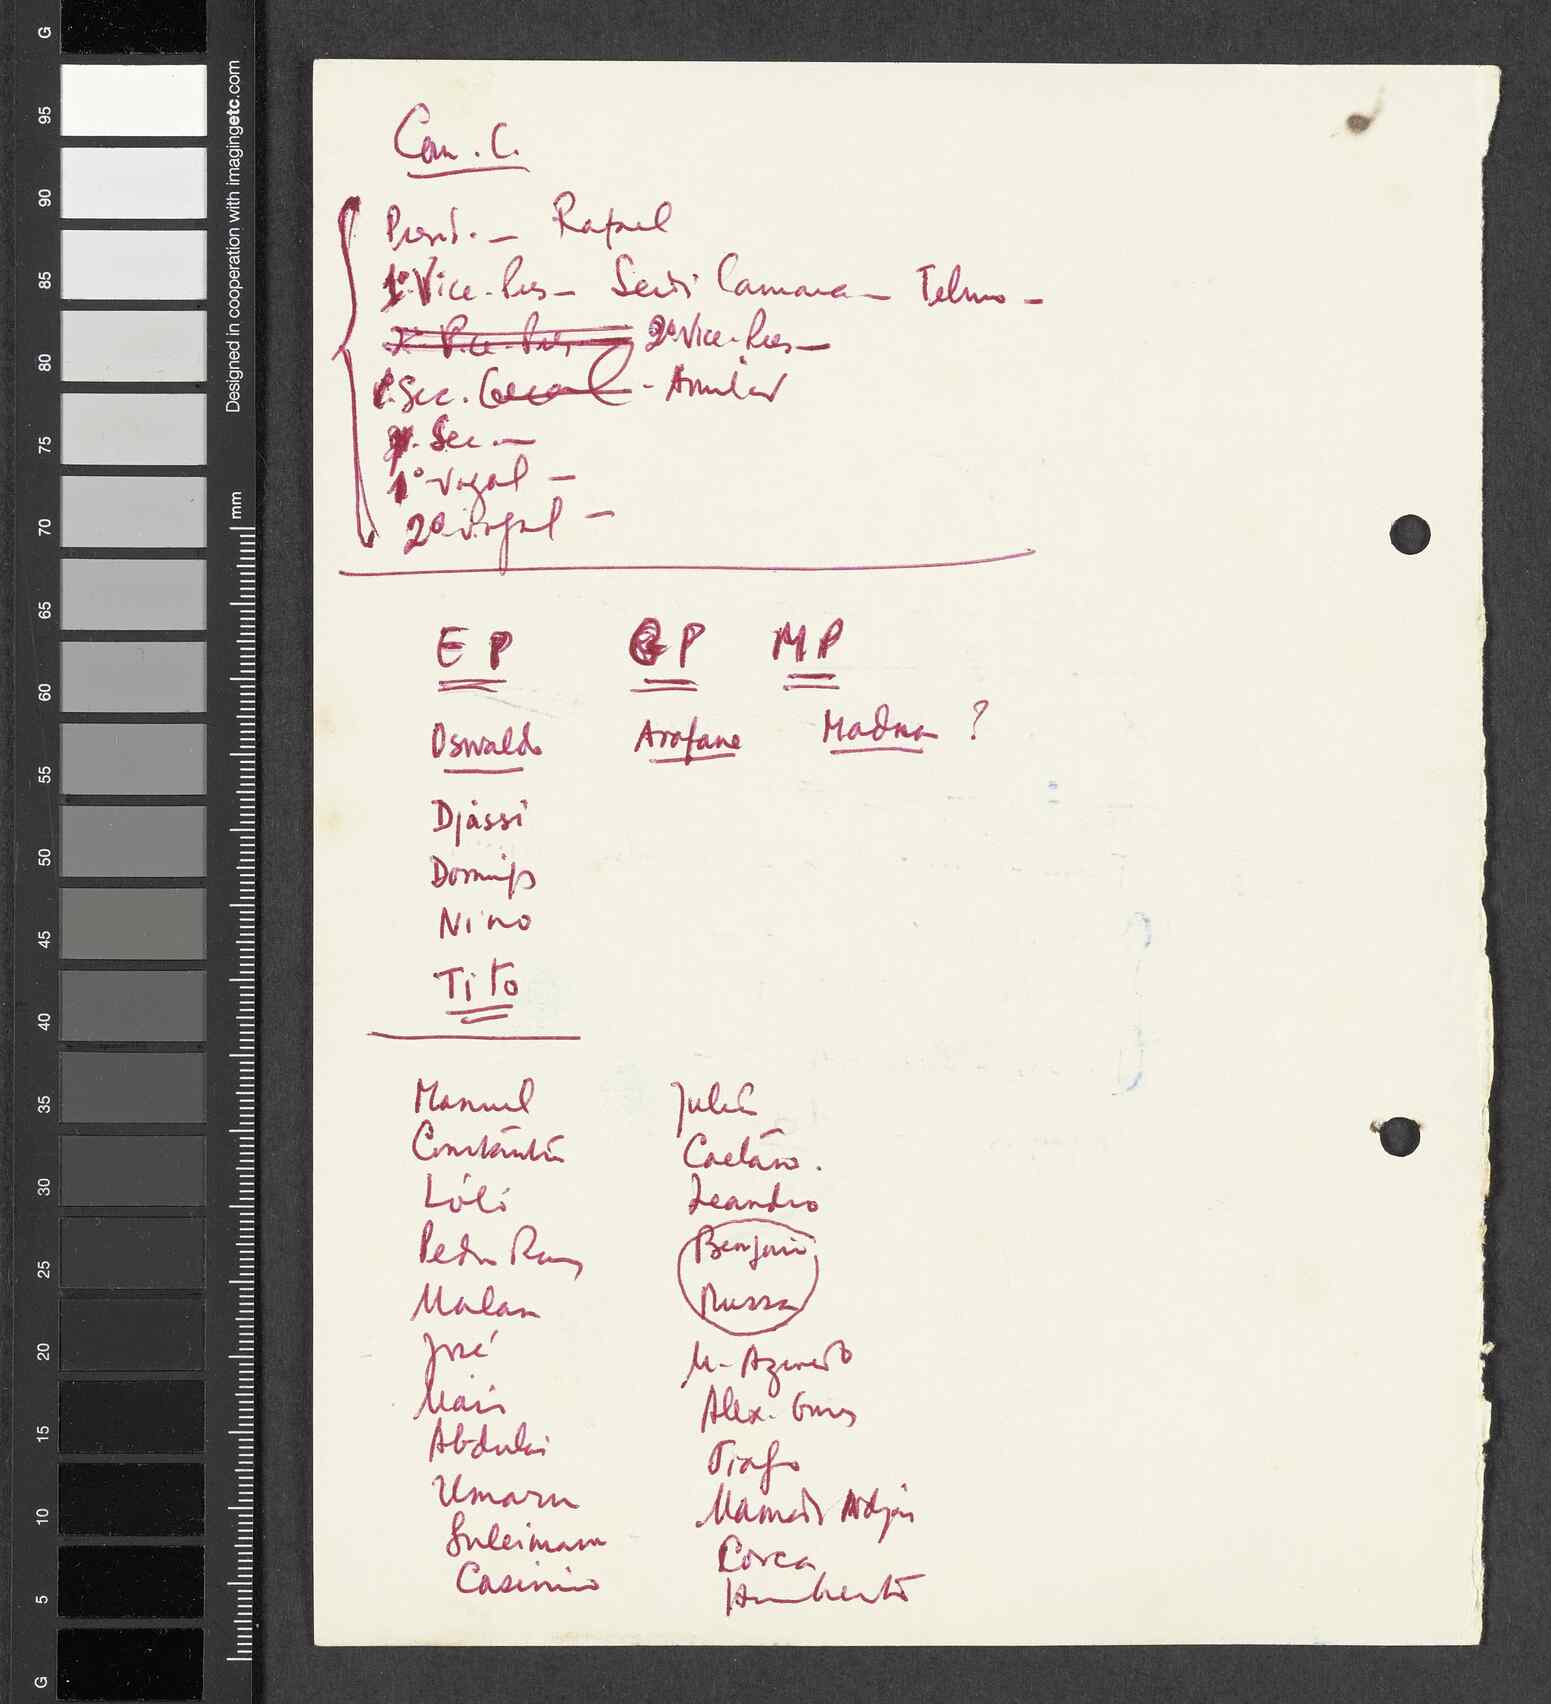 Com. C.
Presid. — Rafael
1º Vice-Pres — Seidi Camara — Telmo —
2º Vice-Pres —
1º Sec. Geral - Amilcar
2º Sec. —
1º Vogal —
2º Vogal —
EP GP MP
Oswaldo Arafane Madna ?
Djassi
Domingos
Nino
Tito
Manuel Julião
Constantin Caetano.
Lóló Leandro
Pedro Ramos Benjamin
Malan Mussa
José M. Azevedo
Mário Alex. Gomes
Abdulai Tiago
Umaru Mamadi Adjai
Suleimane Corca
Casimiro Humberto
G 95 90 85 80 75 70 65 60 55 50 45 40 35 30 25 20 15 10 5 G
Designed in cooperation with imagingetc.com
mm